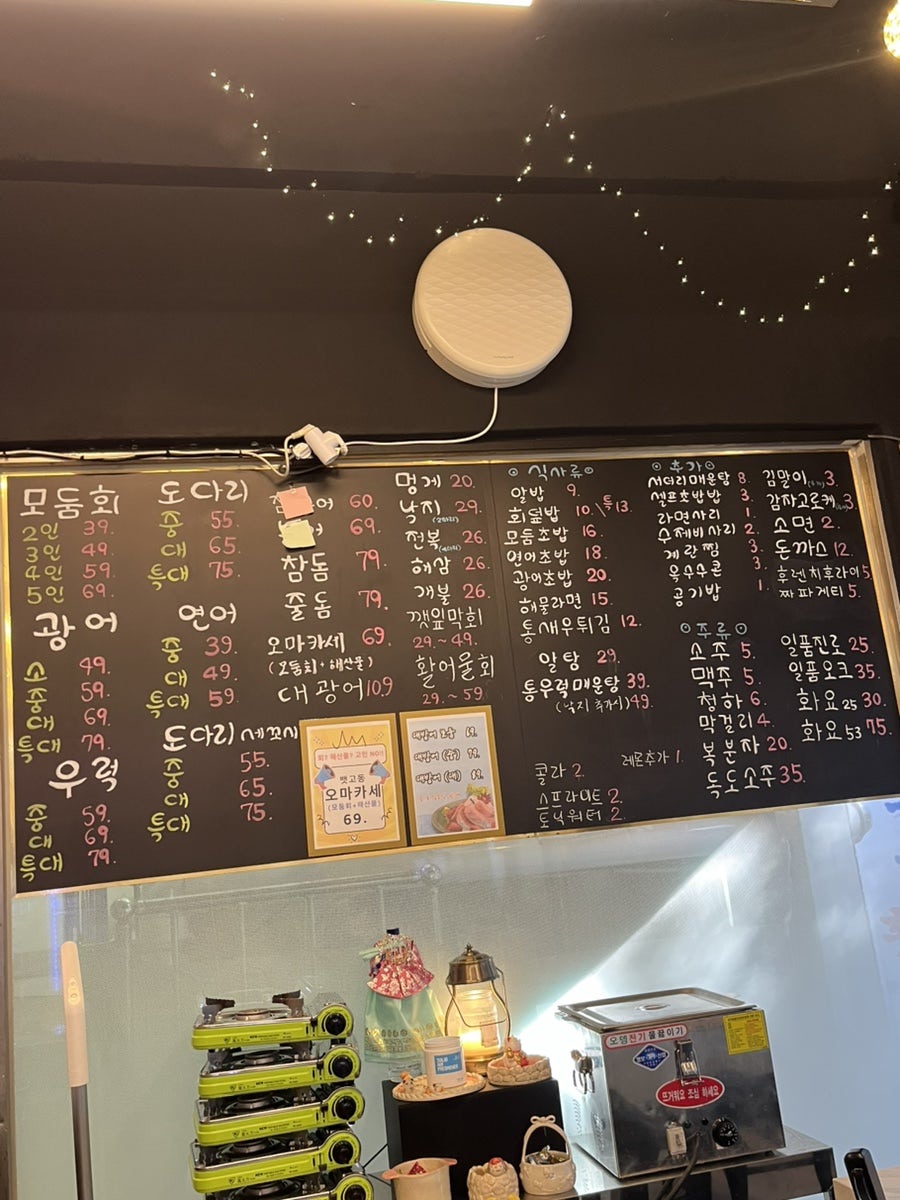 모둠회
2인 39.
3인 49.
4인 59.
5인 69.
광어
소 49.
중 59.
대 69.
특대 79.
우럭
중 59.
대 69.
특대 79.
도다리
중 55.
대 65.
특대 75.
연어
중 39.
대 49.
특대 59.
도다리 세꼬시
중 55.
대 65.
특대 75.
어 60.
어 69.
참돔 79.
줄돔 79.
오마카세 69.
(모둠회·해산물)
대광어 109
멍게 20.
낙지 29.
전복 26.
해삼 26.
개불 26.
깻잎막회
29.~49.
활어물회
29.~59.
회? 해산물? 고민 NO!!
뱃고동
오마카세
(모둠회+해산물)
69.
대방어
대방어 (중) 79.
대방어 (대) 89.
⊙식사류⊙
알밥 9.
회덮밥 10. 특 13.
모둠초밥 16.
연어초밥 18.
광어초밥 20.
해물라면 15.
통새우튀김 12.
알탕 29.
통우럭매운탕 39.
(낙지 추가시) 49.
콜라 2.
스프라이트 2.
토닉워터 2.
레몬추가 1.
⊙추가⊙
서더리매운탕 8.
셀프초밥밥 3.
라면사리 1.
수제비사리 2.
계란찜 3.
옥수수콘 3.
공기밥 1.
김말이 3.
감자고로케 3.
소면 2.
돈까스 12.
후렌치후라이 5.
짜파게티 5.
⊙주류⊙
소주 5.
맥주 5.
청하 6.
막걸리 4.
복분자 20.
독도소주 35.
일품진로 25.
일품오크 35.
화요 25 30.
화요 53 75.
오뎅전기물끓이기
뜨거워요 조심하세요